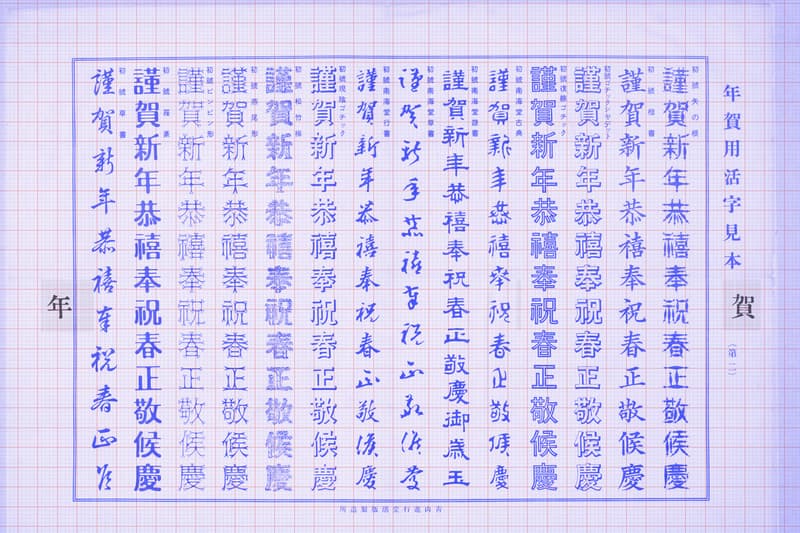 年賀用活字見本
(第二)
賀
初號矢の根
謹賀新年恭禧奉祝春正敬候慶
初號楷書
謹賀新年恭禧奉祝春正敬候慶
初號ゴチックシヤデット
謹賀新年恭禧奉祝春正敬候慶
謹賀新年恭禧奉祝春正敬候慶
初號南海堂古典
謹賀新年恭禧奉祝春正敬候慶
初號南海堂隷書
謹賀新年恭禧奉祝春正敬慶御歳玉
初號南海堂草書
謹賀新年恭禧奉祝正敬候慶
初號南海堂行書
謹賀新年恭禧奉祝春正敬候慶
初號現陰ゴチック
謹賀新年恭禧奉祝春正敬候慶
初號松竹梅
謹賀新年恭禧奉祝春正敬候慶
初號燕尾形
謹賀新年恭禧奉祝春正敬候慶
初號ピンピン形
謹賀新年恭禧奉祝春正敬候慶
謹賀新年恭禧奉祝春正敬候慶
初號草書
謹賀新年恭禧奉祝春正候
年
青山進行堂活版製造所